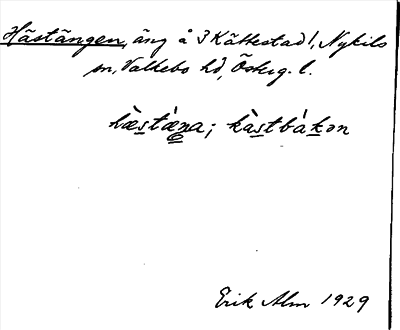 Hästängen, äng å 3 Kättestad l, Nykils
sn, Valkebo hd, Österg. l.
hæ̀stæ̀ŋa; hàstbàkən
Erik Alm 1929